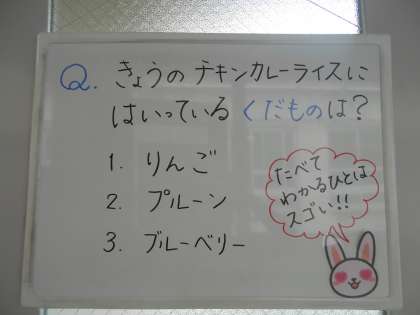 Q. きょうの チキンカレーライスに
はいっている くだものは?
1. りんご
2. プルーン
3. ブルーベリー
たべて
わかるひとは
スゴい!!